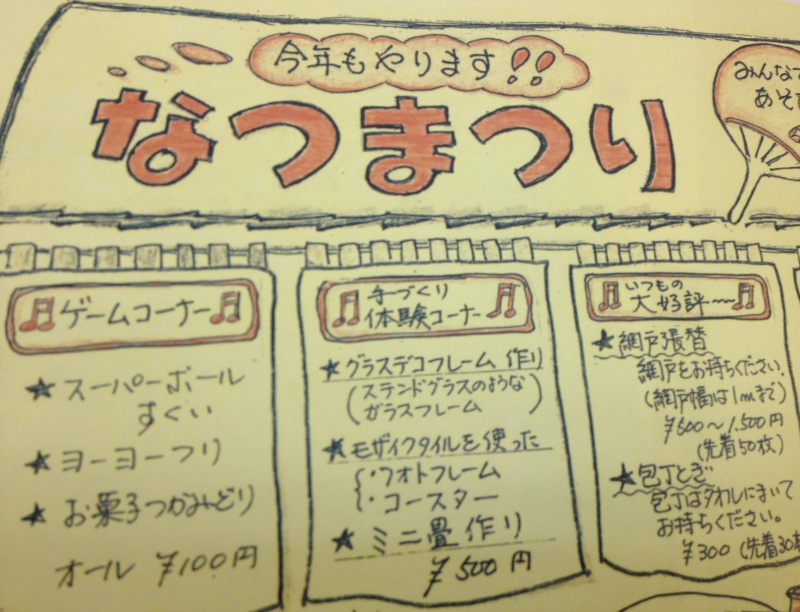 今年もやります!!
なつまつり
みんなで
あそ
ゲームコーナー
★ スーパーボール
すくい
★ ヨーヨーつり
★ お菓子つかみどり
オール ¥100円
手づくり
体験コーナー
★グラスデコフレーム作り
(ステンドグラスのような
ガラスフレーム)
★モザイクタイルを使った
・フォトフレーム
・コースター
★ミニ畳作り
¥500円
いつもの
大好評〜
★網戸張替
網戸をお持ちください。
(網戸幅は1mまで)
¥600〜1,500円
(先着50枚)
★包丁とぎ
包丁はタオルにまいて
お持ちください。
¥300 (先着30本